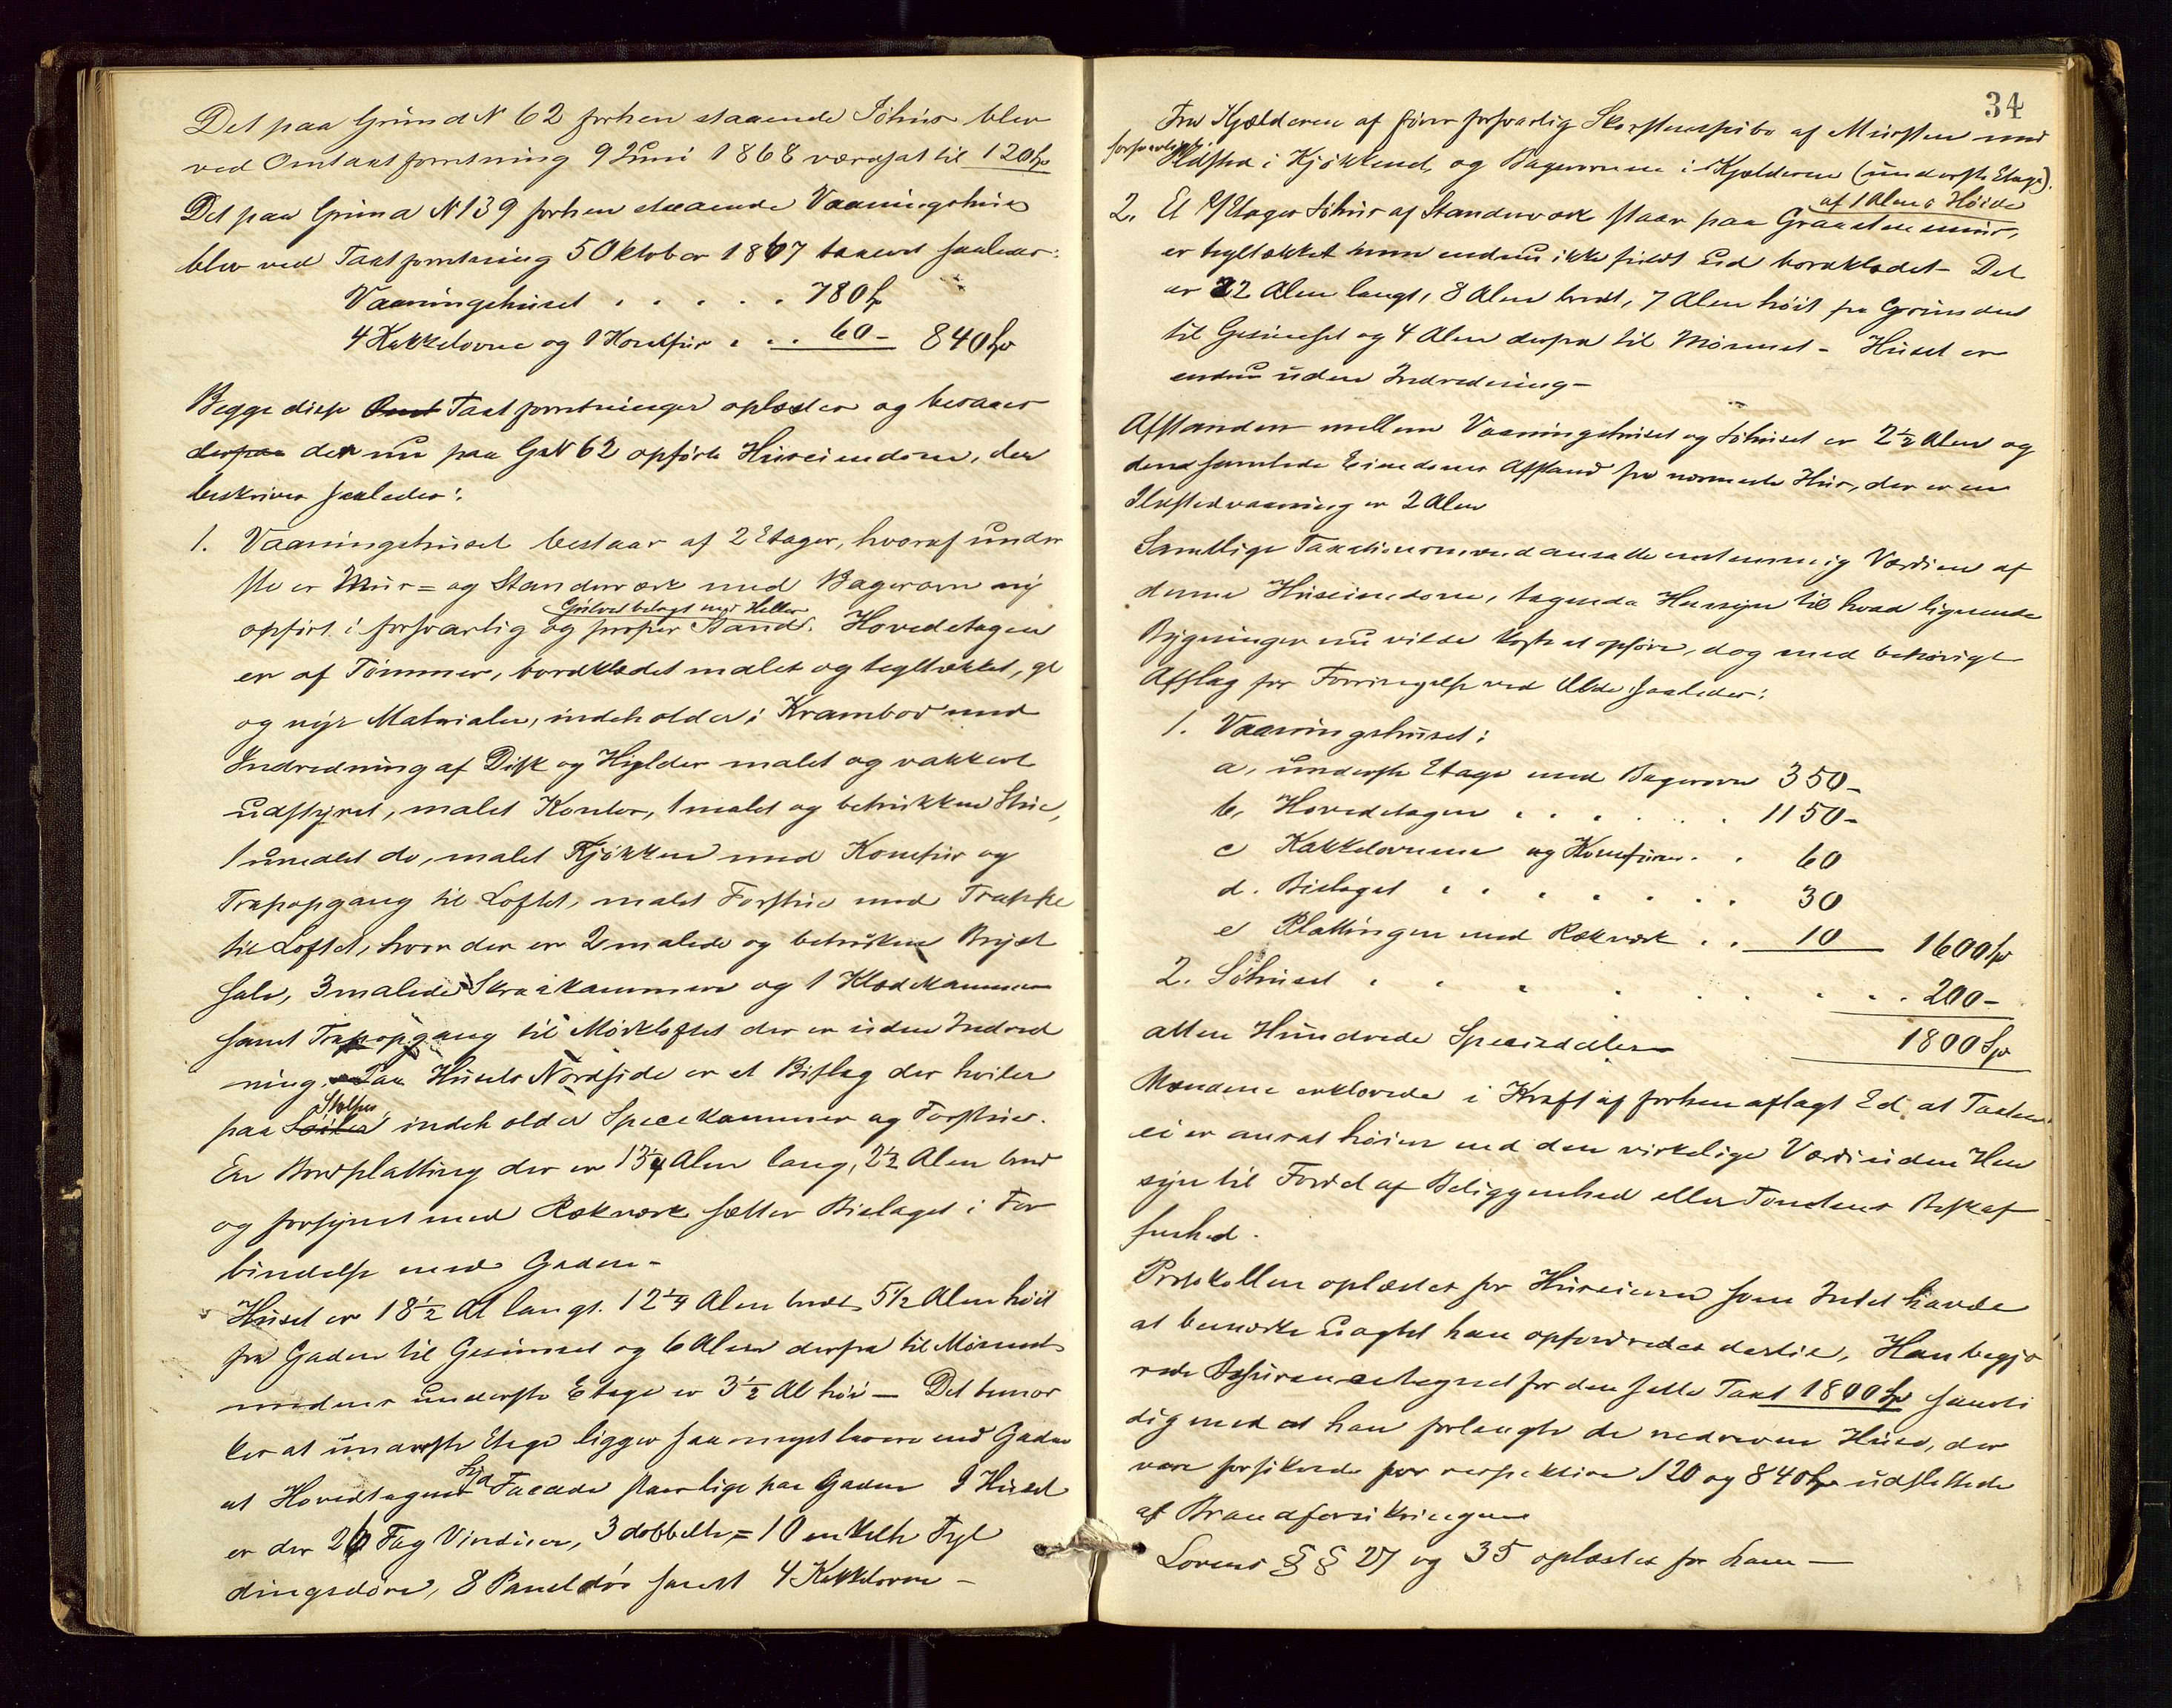 Det paa Grund N 62 forhen staaende Söhus blev
ved Omtaxtforretning 9 Juni 1868 værdsat til 120 Sp
Det paa Grund N 139 forhen staaende Vaaningshus
blev ved Taxtforretning 5 Oktober 1867 taxeret saaledes:
Vaaningshuset . . . . . 780 Sp
4 Kakkelovne og 1 Komfur . . . 60 - 840 Sp
Begge disse Omt Taxtforretninger oplæstes og besaaes
derpaa den nu paa GN 62 opförte Huseiendom, der
beskrives saaledes:
1. Vaaningshuset bestaar af 2 Etager, hvoraf under
ste er Mur= og Standerværk med Bagerovn ny
Gulvet belagt med Heller
opfört i forsvarlig og proper Stand. Hovedetagen
er af Tömmer, bordklædet malet og tegltækket, gl
og nye Materialer, indeholder: Krambod med
Indredning af Disk og Hylder malet og vakkert
udstyret, malet Kontor, 1 malet og betrukken Stue,
1 umalet do, malet Kjökken med Komfur og
Trapopgang til Loftet, malet Forstue med Trappe
til Loftet, hvor der er 2 malede og betrukne Bryst
sale, 3 malede Skraakammere og 1 Klædekammer
samt Trapopgang til Mörkloftet der er uden Indred
ning. Paa Husets Nordside er et Bislag der hviler
Stolper
paa Söiler indeholder Spisekammer og Forstue.
En Bordplatting der er 13 1/4 Alen lang, 2 1/2 Alen bred
og forsynet med Rækværk sætter Bislaget i For
bindelse med Gaden -
Huset er 18 1/2 Al langt. 12 1/4 Alen bredt 5 1/2 Alen höit
fra Gaden til Gesimset og 6 Alen derfra til Mönnet
medens underste Etage er 3 1/2 Al höi - Det bemær
kes at underste Etage ligger saa meget lavere end Gaden
at Hovedetagens Facade staar lige paa Gaden I Huset
er der 26 Fag Vinduer, 3 dobbelte, = 10 enkelte Fyl
dingsdöre, 8 Paneldöre samt 4 Kakkelovne -
34
Fra Kjælderen af förer forsvarlig Skorstenspibe af Mursten med
forsvarlige Ildsted i Kjökkenet, og Bagerovnen i Kjælderen (underste Etage).
af 1 Alens Höide
2. Et 2 Etages Söhus af Standerværk staar paa Graastensmur,
er tegltækket men endnu ikke fuldt ud bordklædet - Det
er 22 Alen langt, 8 Alen bredt, 7 Alen höit fra Grunden
til Gesimset og 4 Alen derfra til Mönnet - Huset er
endnu uden Indredning -
Afstanden mellem Vaaningshuset og Söhuset er 2 1/2 Alen og
den samlede Eiendoms Afstand fra nærmeste Hus, der er en
Ildstedsvaaning er 2 Alen
Samtlige Taxationsmænd ansatte enstemmig Værdien af
denne Huseiendom, tagende Hensyn til hvad lignende
Bygninger nu vilde koste at opföre, dog med behörigt
Afslag for Forringelse ved Ælde saaledes:
1. Vaaningshuset:
a, underste Etage med Bagerovn 350 -
b, Hovedetagen . . . . . . 1150 -
c Kakkelovnene og Komfuren . . 60
d. Bislaget . . . . . . . 30
e Plattingen med Rækværk . . 10 1600 Sp
2. Söhuset . . . . . . . . 200 -
atten Hundrede Speciedaler 1800 Sp
Mændene erklærede i Kraft af forhen aflagt Ed, at Taxten
ei er ansat höiere end den virkelige Værdi uden Hen
syn til Fordel af Beliggenhed eller Tomtens Beskaf
fenhed.
Protokollen oplæstes for Huseieren som Intet havde
at bemærke uagtet han opfordredes dertil, Han begjæ
rede Assurance tegnet for den fulde Taxt 1800 Sp samti
dig med at han forlangte de nedrevne Huse, der
vare forsikrede for respektive 120 og 840 Sp udslettede
af Brandforsikringen
Lovens § § 27 og 35 oplæstes for ham -